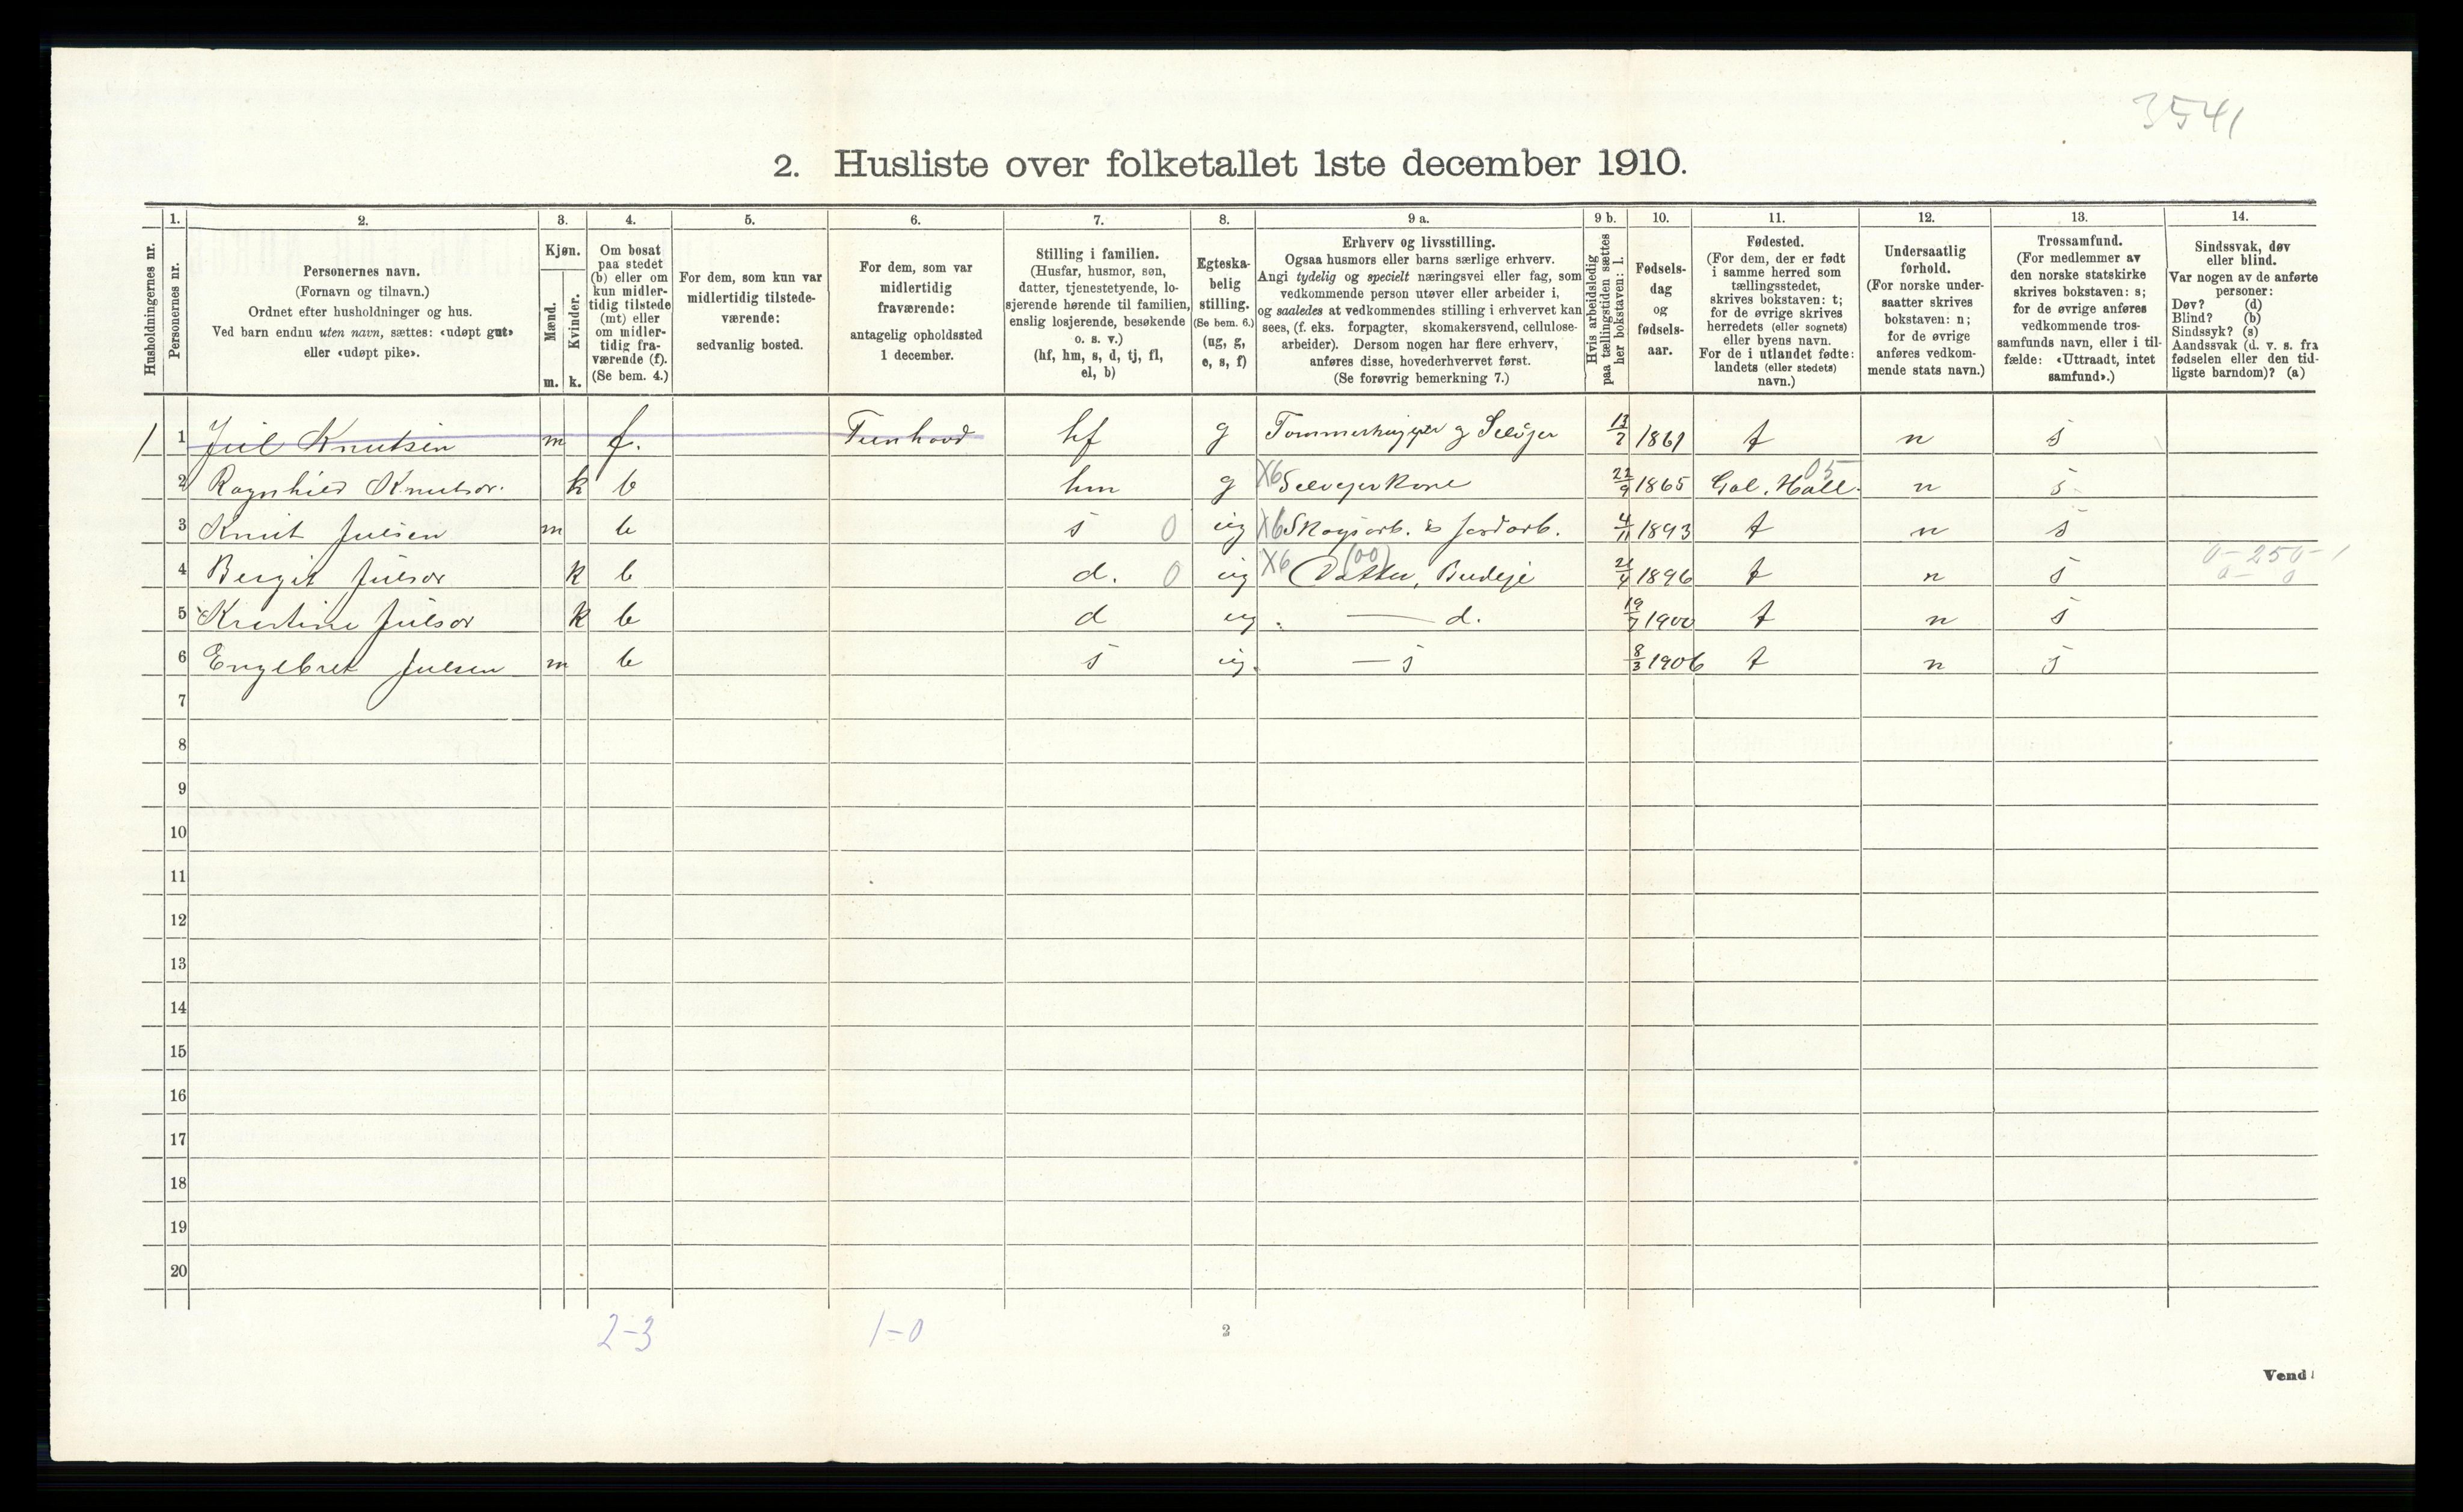 3541
2. Husliste over folketallet 1ste december 1910.
Husholdningernes nr.
1.
Personernes nr.
2.
Personernes navn.
(Fornavn og tilnavn.)
Ordnet efter husholdninger og hus.
Ved barn endnu uten navn, sættes: «udøpt gut»
eller «udøpt pike».
3.
Kjøn.
Mænd.
Kvinder.
m. k.
4.
Om bosat
paa stedet
(b) eller om
kun midler-
tidig tilstede
(mt) eller
om midler-
tidig fra-
værende (f).
(Se bem. 4.)
5.
For dem, som kun var
midlertidig tilstede-
værende:
sedvanlig bosted.
6.
For dem, som var
midlertidig
fraværende:
antagelig opholdssted
1 december.
7.
Stilling i familien.
(Husfar, husmor, søn,
datter, tjenestetyende, lo-
sjerende hørende til familien,
enslig losjerende, besøkende
o. s. v.)
(hf, hm, s, d, tj, fl,
el, b)
8.
Egteska-
belig
stilling.
(Se bem. 6.)
(ug, g,
e, s, f)
9 a.
Erhverv og livsstilling.
Ogsaa husmors eller barns særlige erhverv.
Angi tydelig og specielt næringsvei eller fag, som
vedkommende person utøver eller arbeider i,
og saaledes at vedkommendes stilling i erhvervet kan
sees, (f. eks. forpagter, skomakersvend, cellulose-
arbeider). Dersom nogen har flere erhverv,
anføres disse, hovederhvervet først.
(Se forøvrig bemerkning 7.)
9 b.
Hvis arbeidsledig
paa tællingstiden sættes
her bokstaven: l.
10.
Fødsels-
dag
og
fødsels-
aar.
11.
Fødested.
(For dem, der er født
i samme herred som
tællingsstedet,
skrives bokstaven: t;
for de øvrige skrives
herredets (eller sognets)
eller byens navn.
For de i utlandet fødte:
landets (eller stedets)
navn.)
12.
Undersaatlig
forhold.
(For norske under-
saatter skrives
bokstaven: n;
for de øvrige
anføres vedkom-
mende stats navn.)
13.
Trossamfund.
(For medlemmer av
den norske statskirke
skrives bokstaven: s;
for de øvrige anføres
vedkommende tros-
samfunds navn, eller i til-
fælde: «Uttraadt, intet
samfund».)
14.
Sindssvak, døv
eller blind.
Var nogen av de anførte
personer:
Døv? (d)
Blind? (b)
Sindssyk? (s)
Aandssvak (d. v. s. fra
fødselen eller den tid-
ligste barndom)? (a)
1 1 Juel Knutsen m f. Tunhovd hf g Tommerhugger g Selejer 13/7 1861 t n s
2 Ragnhild Knutsdr. k b hm g X6 Selvejerkone 22/9 1865 Gol. Hall. 05 n s
3 Knut Julsen m b s 0 ug X6 Skogsarb. & jordarb. 4/11 1893 t n s
4 Bergit Julsdr k b d. 0 ug X6 (00) Datter, Budeje 21/4 1896 t n s 0-250-1
0- 0
5 Kristine Julsdr k b d ug. — d. 19/7 1900 t n s
6 Engebret Julsen m b s ug. — s 8/3 1906 t n s
7
8
9
10
11
12
13
14
15
16
17
18
19
20
2-3 1-0 2
Vend!